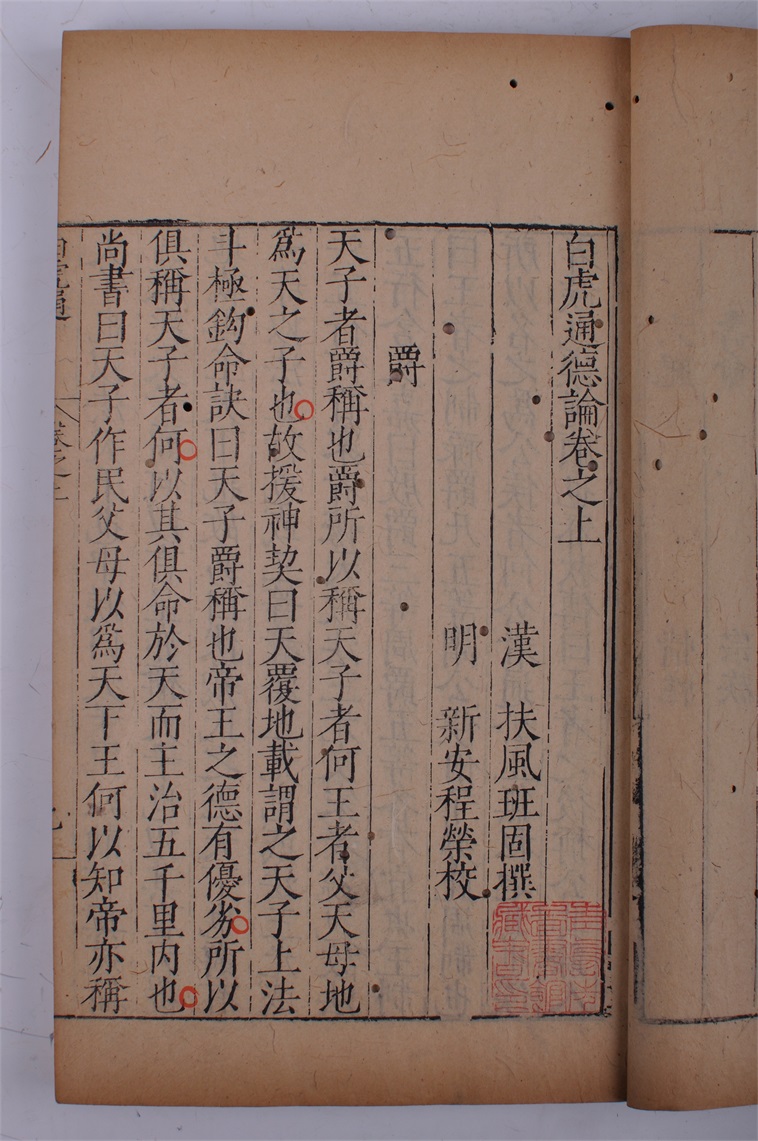 白虎通德論卷之上
漢 扶風班固撰
明 新安程榮校
爵
天子者爵稱也爵所以稱天子者何王者父天母地
爲天之子也故援神契曰天覆地載謂之天子上法
斗極鈎命訣曰天子爵稱也帝王之德有優劣所以
俱稱天子者何以其俱命於天而主治五千里内也
尚書曰天子作民父母以爲天下王何以知帝亦稱
白虎通 卷之上